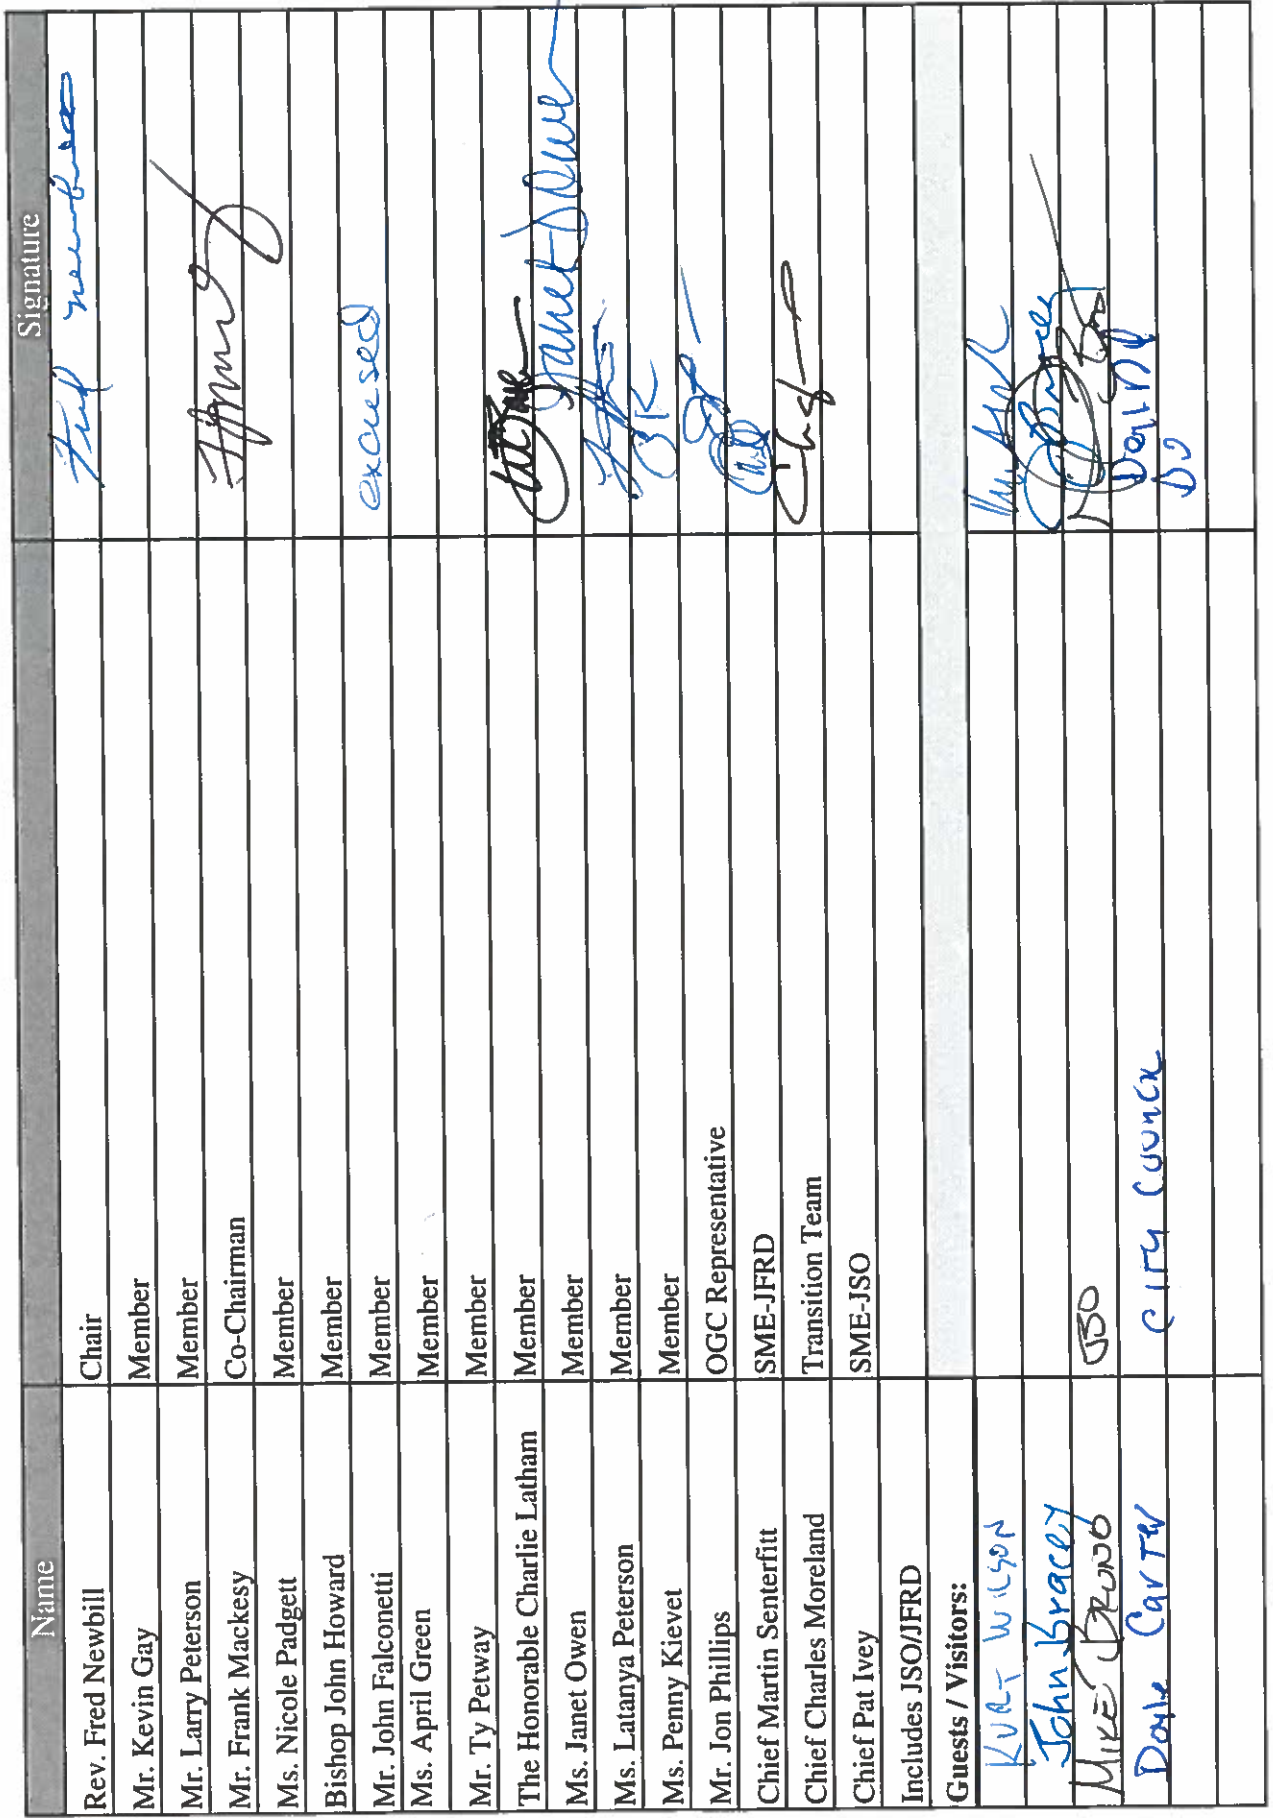 Name Signature
Rev. Fred Newbill Chair
Mr. Kevin Gay Member
Mr. Larry Peterson Member
Mr. Frank Mackesy Co-Chairman
Ms. Nicole Padgett Member
Bishop John Howard Member
Mr. John Falconetti Member excused
Ms. April Green Member
Mr. Ty Petway Member
The Honorable Charlie Latham Member
Ms. Janet Owen Member Janet Owen
Ms. Latanya Peterson Member
Ms. Penny Kievet Member
Mr. Jon Phillips OGC Representative
Chief Martin Senterfitt SME-JFRD
Chief Charles Moreland Transition Team
Chief Pat Ivey SME-JSO
Includes JSO/JFRD
Guests / Visitors:
KURT WILSON
John Bracey
MIKE BRUNO
Doyle Carter City Council